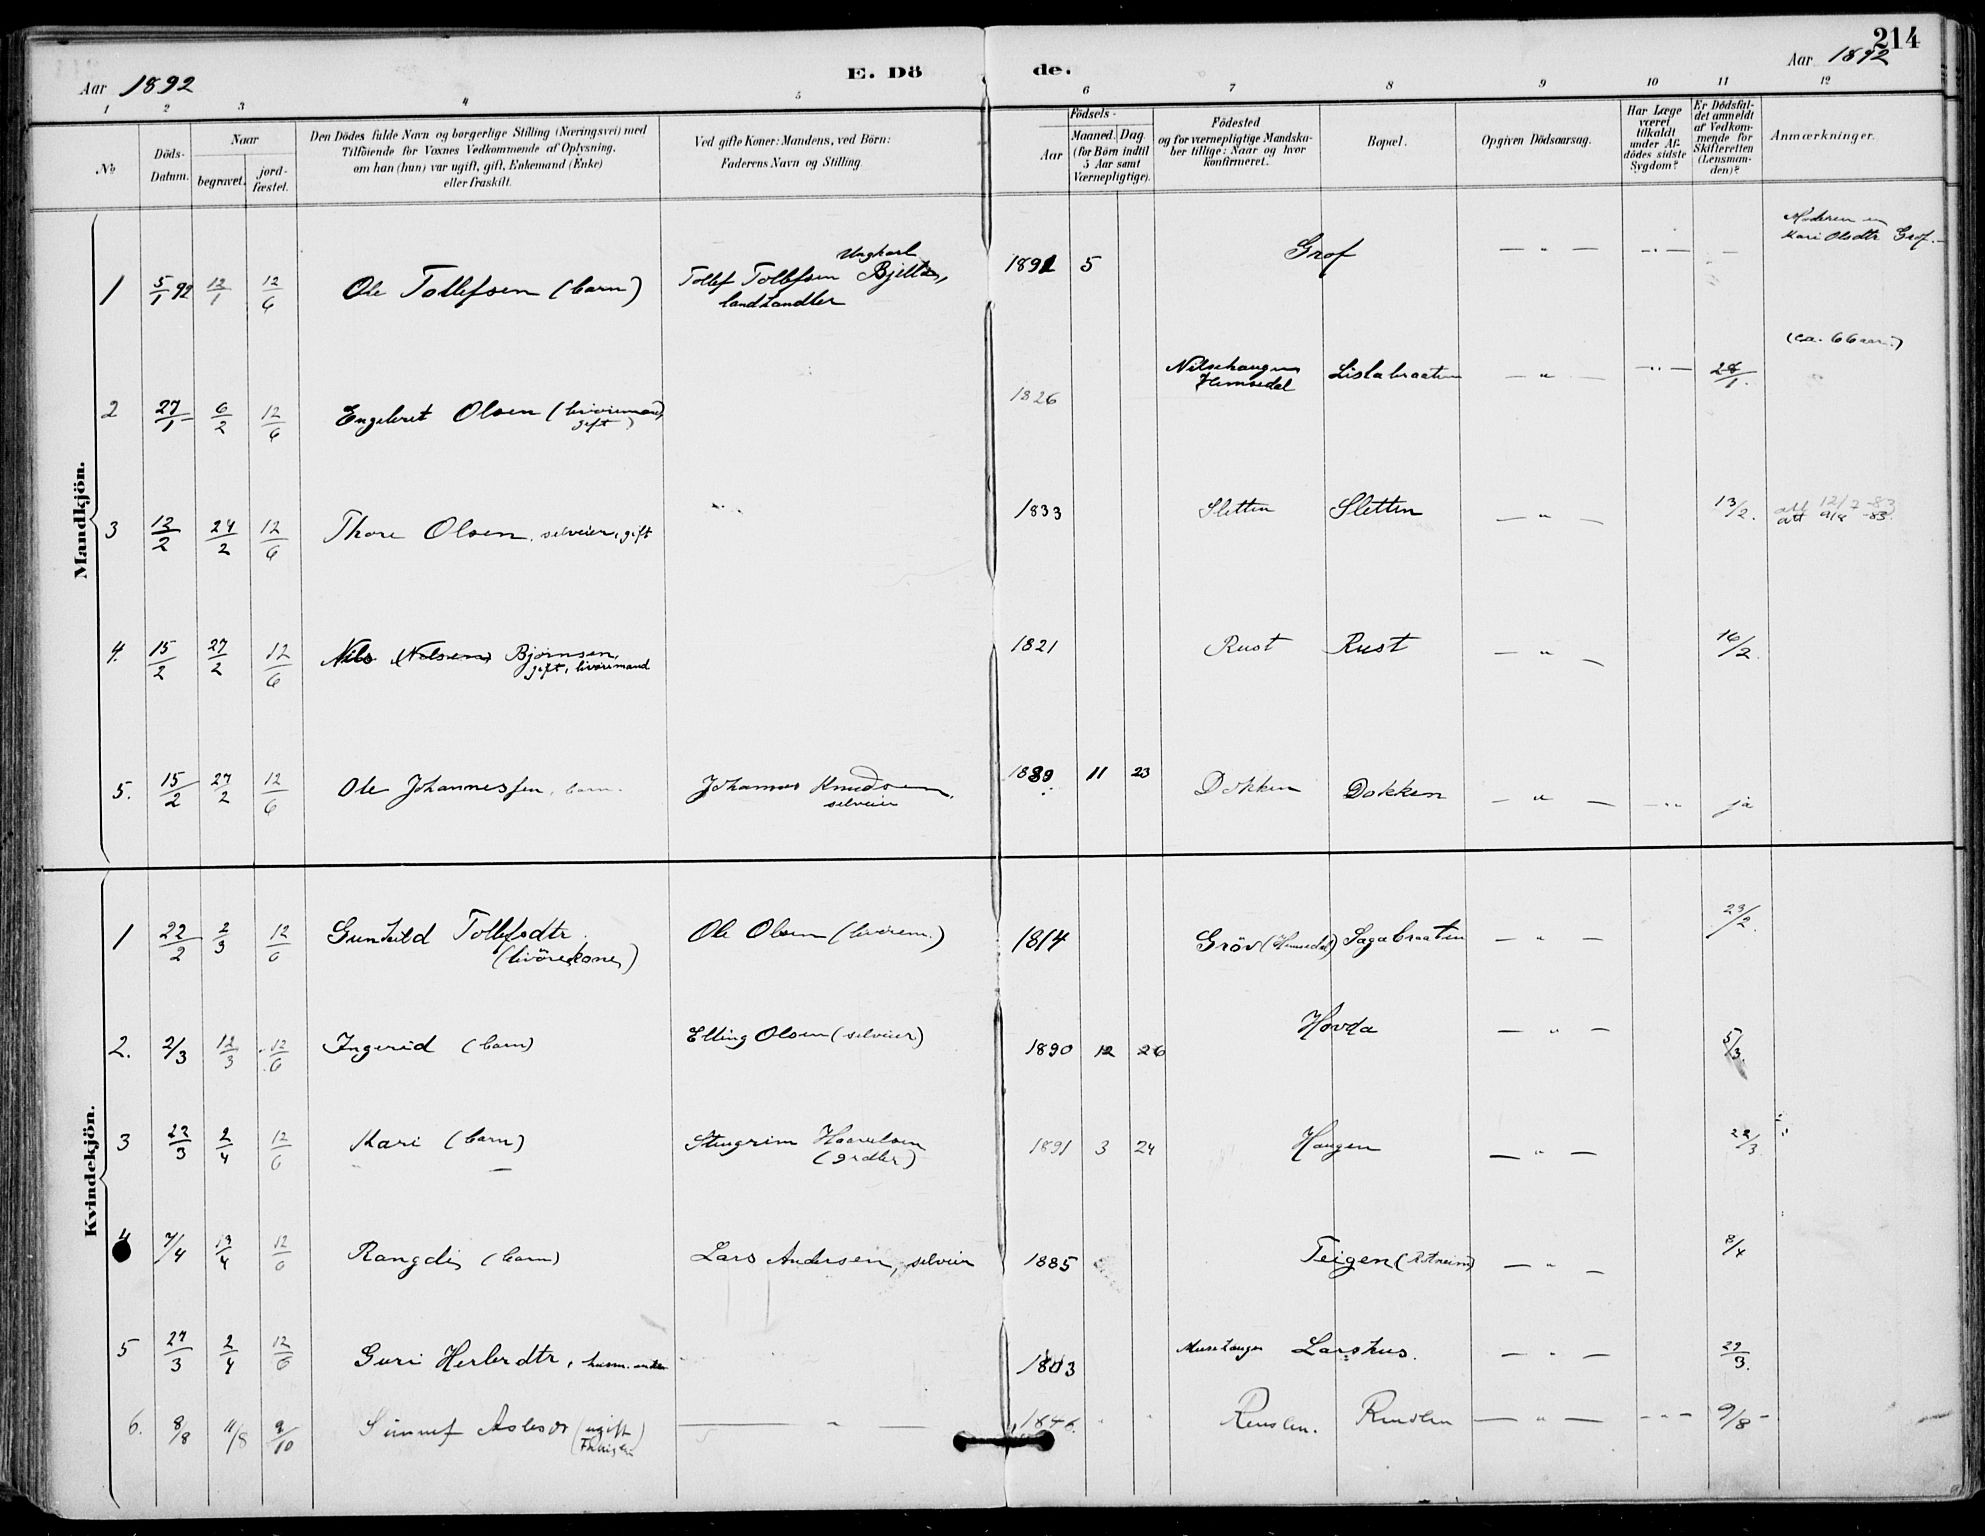 214
Aar 1892
E. Dö
de.
Aar 1892
1 2 3 4 5 6 7 8 9 10 11 12
No
Döds-
Datum.
Naar
begravet.
jord-
fæstet.
Den Dödes fulde Navn og borgerlige Stilling (Næringsvei) med
Tilföiende for Voxnes Vedkommende af Oplysning,
om han (hun) var ugift, gift, Enkemand (Enke)
eller fraskilt.
Ved gifte Koner: Mandens, ved Börn:
Faderens Navn og Stilling.
Födsels-
Aar
Maaned.
Dag.
(for Börn indtil
5 Aar samt
Værnepligtige).
Födested
og for værnepligtige Mandska-
ber tillige: Naar og hvor
konfirmeret.
Bopæl.
Opgiven Dödsaarsag.
Har Læge
været
tilkaldt
under Af-
dödes sidste
Sygdom?
Er Dödsfal-
det anmeldt
af Vedkom-
mende for
Skifteretten
(Lensman-
den)?
Anmærkninger.
Mandkjön.
1 5/1 92 12/1 12/6 Ole Tollefsen (barn) Ungkarl
Tollef Tollefsen
landhandler 1891 5 Grøf — " — — " — — Moderen er
Kari Olsdtr Grøf.
2 27/1 6/2 12/6 Engebret Olsen (livørmand,
gift) 1826 Nilsehaugen
Hemsedal Lislabraaten — " — — " — 28/1. (ca. 66 aar.)
3 12/2 24/2 12/6 Thore Olsen, selveier, gift 1833 Sletten Sletten — " — 13/2.
att 12/7 -83
4. 15/2 27/2 12/6 Nils Nilsen Bjørnsen,
gift, livørmand 1821 Rust Rust — " — 16/2.
5. 15/2 27/2 12/6 Ole Johannessen, barn. Johannes Knudsen,
selveier 1889 11 23 Dokken Dokken — " — — " — ja
Kvindekjön.
1 22/2 2/3 12/6 Gunhild Tollefsdtr.
(livörekone) Ole Olsen (livörem.) 1814 Gröv (Hemsedal) Sagabraaten — " — 23/2.
2. 2/3 12/3 12/6 Ingerid (barn) Elling Olsen (selveier) 1890 12 26 Hovda — " — 5/3.
3 22/3 2/4 12/6 Kari (barn) Stengrim
1891 3 24 Haugen — " — 22/3.
4 7/4 13/4 12/6 Rangdi (barn) Lars Andersen, selveier 1885 Teigen — " — 8/4
5 27/3 2/4 12/6 Guri Herbrdtr, husm. enke 1803 Larshus. — " — 29/3.
6. 8/8 11/8 9/10 Sünnef Aslesdr (ugift
— " — 1846. " " — " — — " — 9/8 —